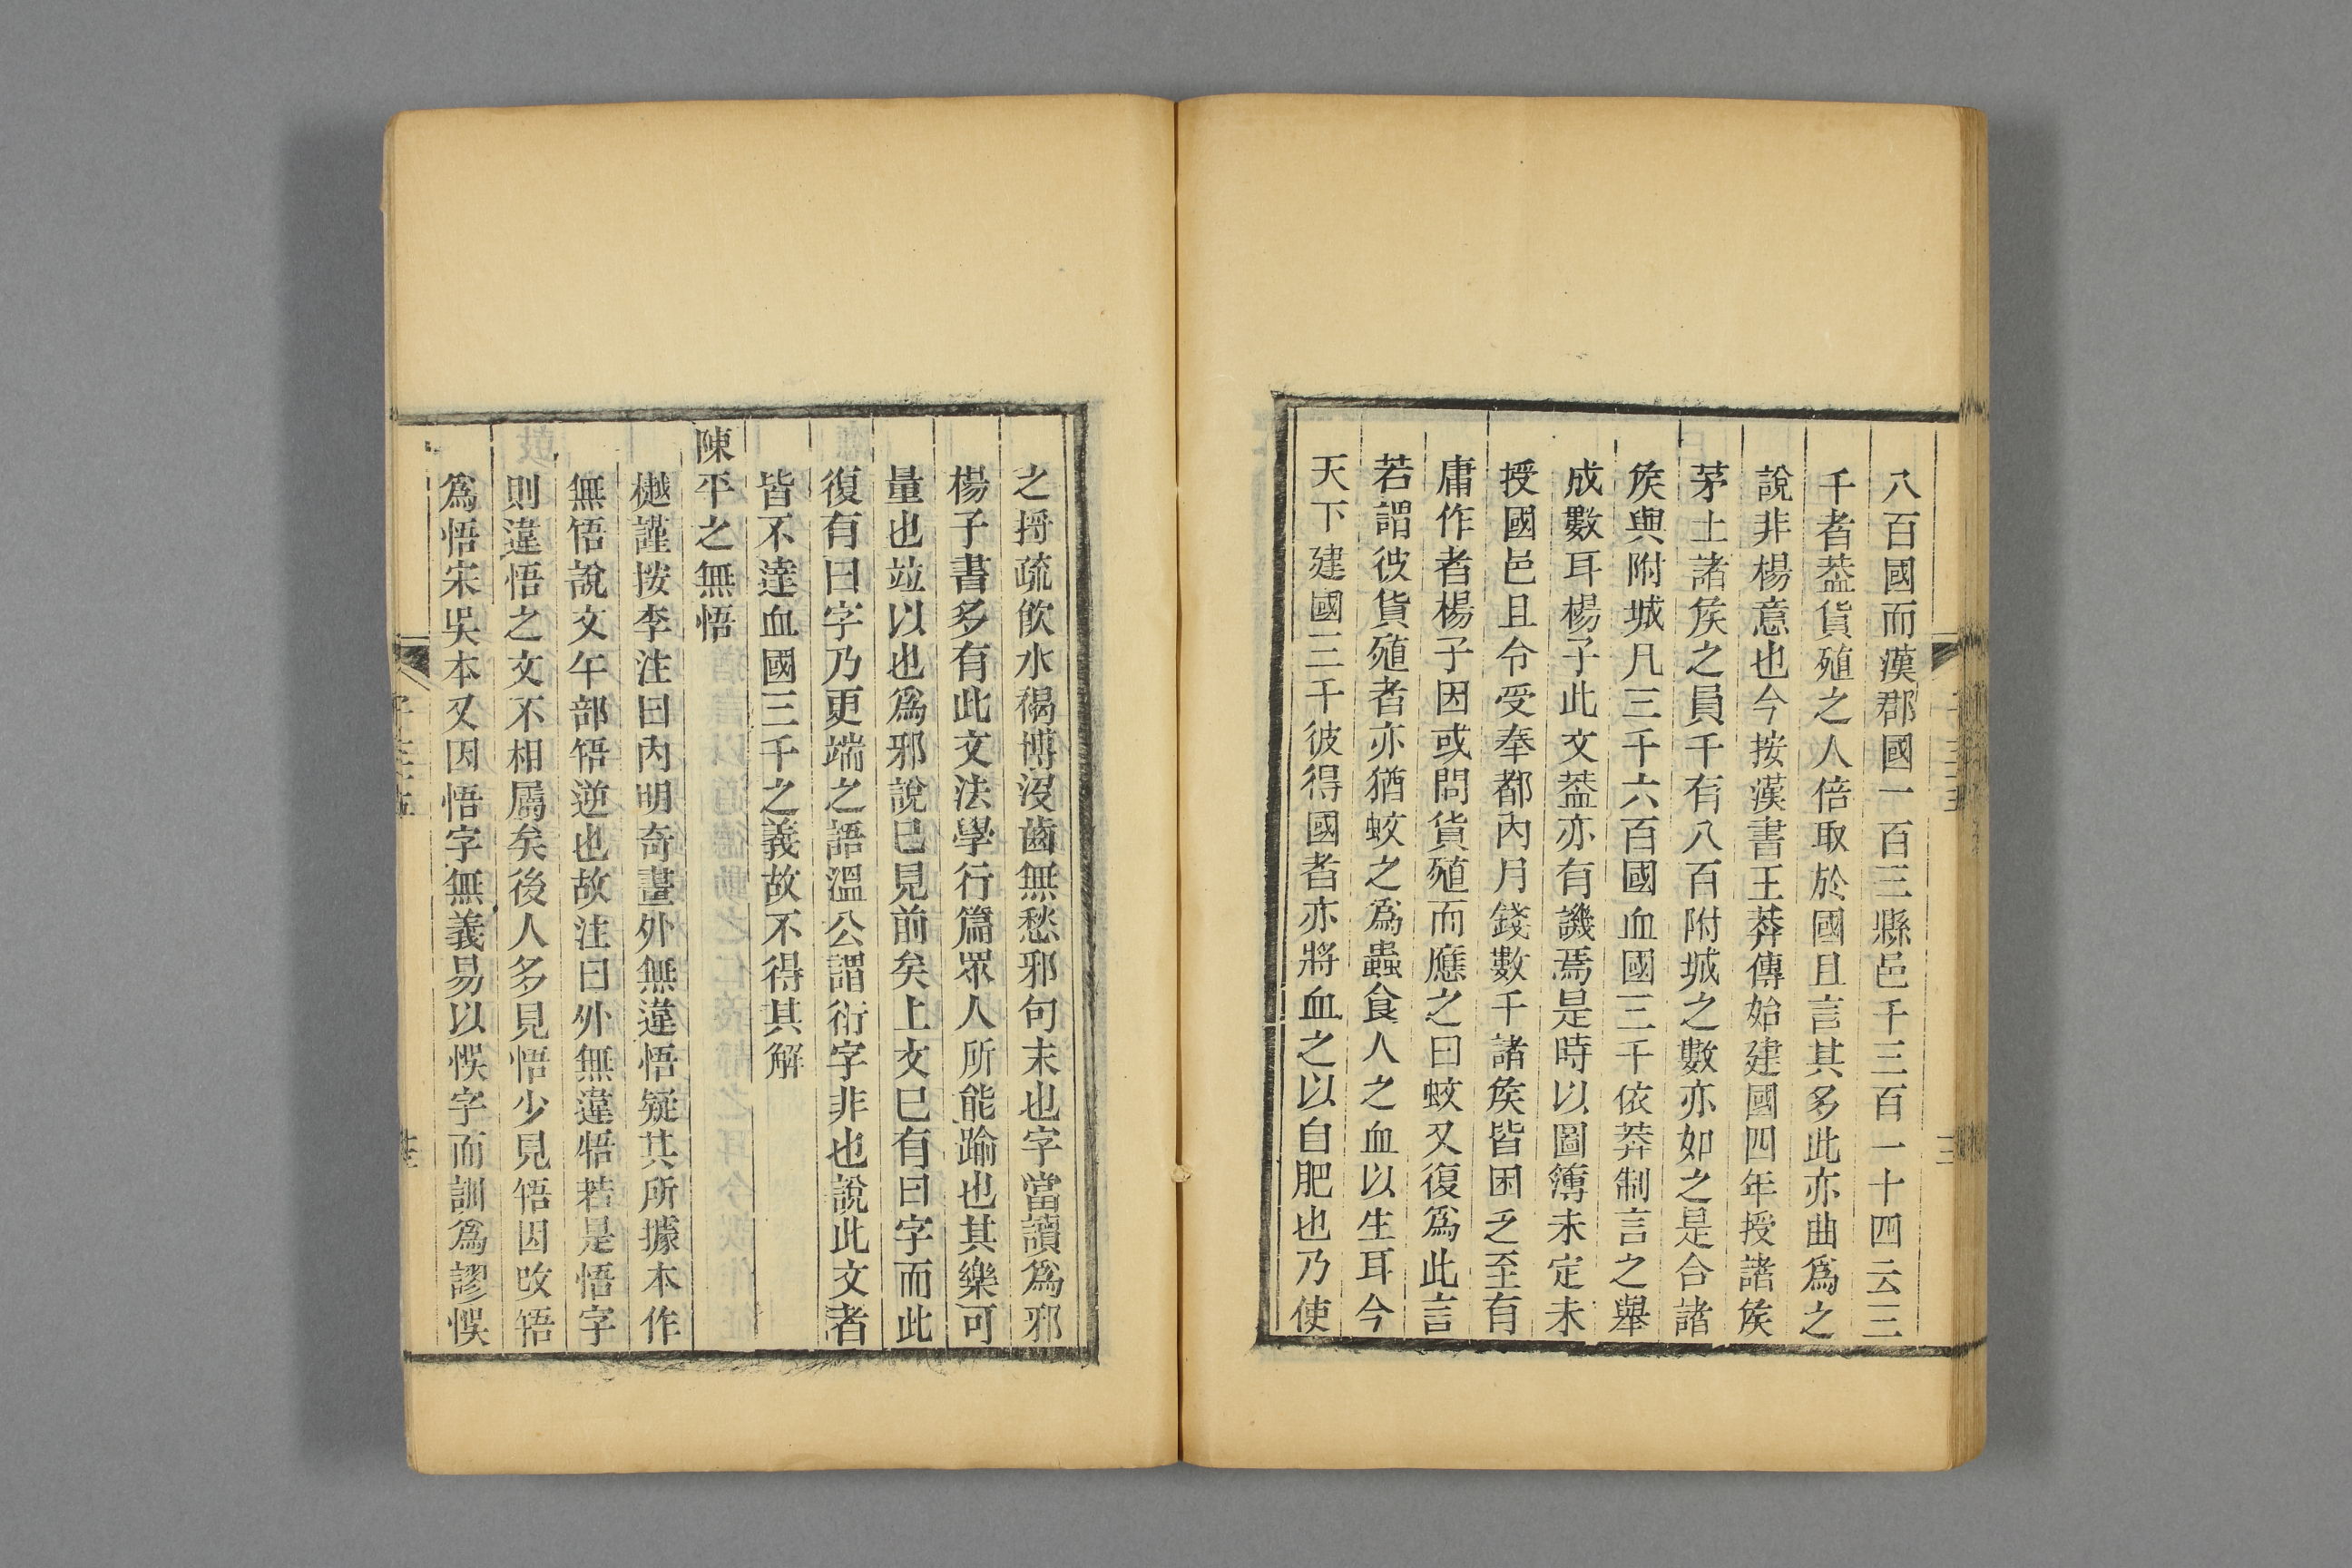 八百國而漢郡國一百三縣邑千三百一十四云三
千者葢貨殖之人倍取於國且言其多此亦曲爲之
說非楊意也今按漢書王莽傳始建國四年授諸矦
茅土諸矦之員千有八百附城之數亦如之是合諸
矦與附城凡三千六百國血國三千依莽制言之舉
成數耳楊子此文葢亦有譏焉是時以圖簿未定未
授國邑且令受奉都內月錢數千諸矦皆困乏至有
庸作者楊子因或問貨殖而應之曰蚊又復爲此言
若謂彼貨殖者亦猶蚊之爲蟲食人之血以生耳今
天下建國三千彼得國者亦將血之以自肥也乃使
之捋疏飮水褐博沒齒無愁邪句末也字當讀爲邪
楊子書多有此文法學行篇眾人所能踰也其樂可
量也竝以也爲邪說已見前矣上文已有曰字而此
復有曰字乃更端之語溫公謂衍字非也說此文者
皆不達血國三千之義故不得其解
陳平之無悟
樾謹按李注曰內明奇畫外無違悟疑其所據本作
無啎說文午部啎逆也故注曰外無違牾若是悟字
則違悟之文不相屬矣後人多見悟少見啎因改啎
爲悟宋吳本又因悟字無義易以悞字而訓爲謬悞